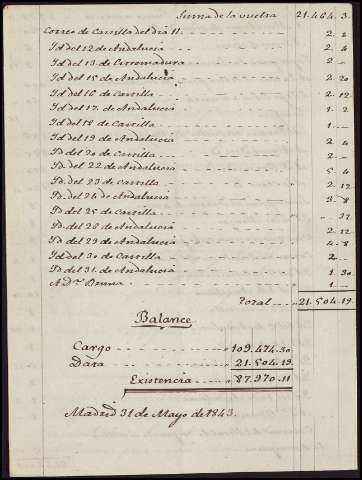 Suma de la vuelta 21.464.3.
Correo de Castilla del dia 11. 2. 2
Yd del 12 de Andalucia 2. 4
Yd del 13 de Extremadura 2. –
Yd del 15 de Andalucia 2. 20
Yd del 16 de Castilla 2. 12
Yd del 17 de Andalucia 1. 2
Yd del 18 de Castilla 1. –
Yd del 19 de Andalucia 2. 4
Yd del 20 de Castilla 2. –
Yd del 22 de Andalucia 5. 4
Yd del 23 de Castilla 2. 12
Yd del 24 de Andalucia 3. 8
Yd del 25 de Castilla
Yd del 28 de Andalucia 2. 12
Yd del 29 de Andalucia 4. 8
Yd del 30 de Castilla 2. –
Yd del 31 de Andalucia 1. 30
1. –
Total 21.504.19
Balance
Cargo 109.474.30
Data 21.504.19
Existencia 87.970.11
Madrid 31 de Mayo de 1843.